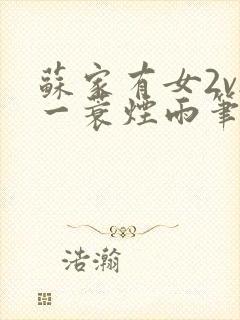 蘇家有女2v
一蓑煙雨筆
浩瀚